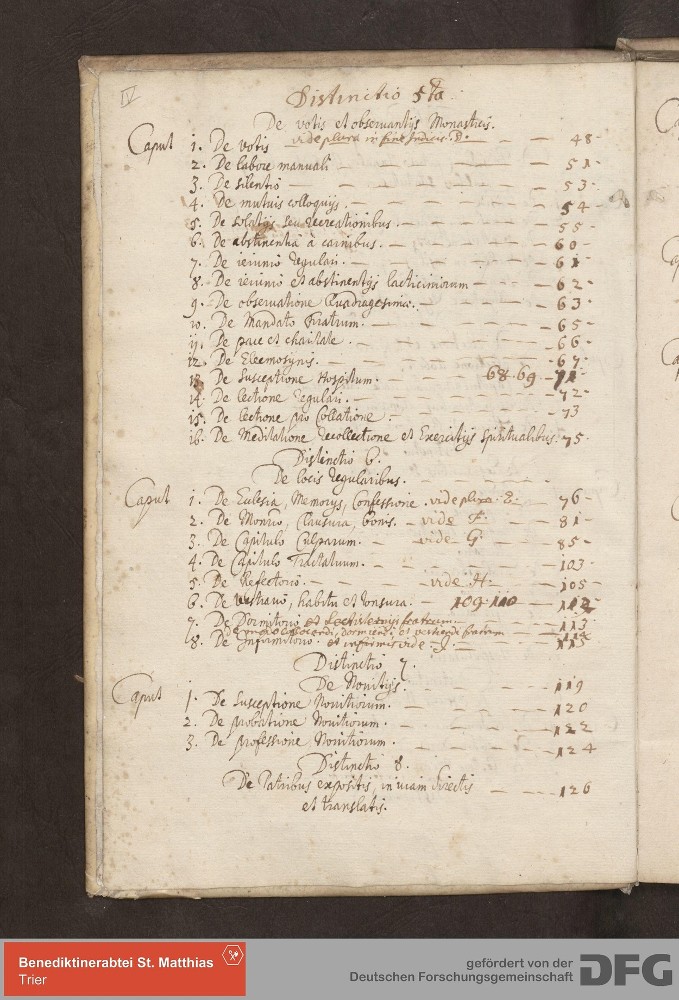 IV
Distinctio 5ta
De votis et observantijs Monasticis.
Caput 1. De votis vide plura in fine Indicis. D. — — 48
2. De labore manuali — — — — — 51
3. De silentio — — — — — 53
4. De mutuis colloquijs. — — — — 54
5. De solatijs seu recreationibus. — — — — 55
6. De abstinentiâ à carnibus. — — — — 60
7. De ieiunio regulari. — — — — 61
8. De ieiunio et abstinentijs lacticiniorum — — — 62
9. De observatione Quadragesimae. — — — 63
10. De Mandato Fratrum. — — — — 65
11. De pace et charitate. — — — — 66
12. De Eleemosynis. — — — 67
13. De Susceptione Hospitum. — — 68. 69 — 71
14. De lectione regulari. — — — — 72
15. De lectione pro Collatione. — — — 73
16. De Meditatione recollectione et Exercitijs Spiritualibus. 75
Distinctio 6.
De locis regularibus. — — — —
Caput 1. De Ecclesia, Memorijs, Confessione. vide plura. E. — 76
2. De Monrio, Clausura, bonis. — vide F. — 81
3. De Capitulo Culparum. — vide G — 85
4. De Capitulo Tractatuum. — — — 103
5. De Refectorio. — — — vide H. — 105
6. De vestiario, habitu et tonsura. — 109. 110 — 112
7. De Dormitorio et Lectisternijs fratrum — — 113
dormiendi et fratrum — 114
8. De Infirmitorio. et infirmis vide. J. — — 115
Distinctio 7.
De Novitijs. — — — 119
Caput 1. De Susceptione Novitiorum. — — — 120
2. De probatione Novitiorum. — — — 122
3. De professione Novitiorum. — — — 124
Distinctio 8.
De Patribus expositis, in viam directis — — 126
et translatis.
Benediktinerabtei St. Matthias
Trier
gefördert von der
Deutschen Forschungsgemeinschaft
DFG